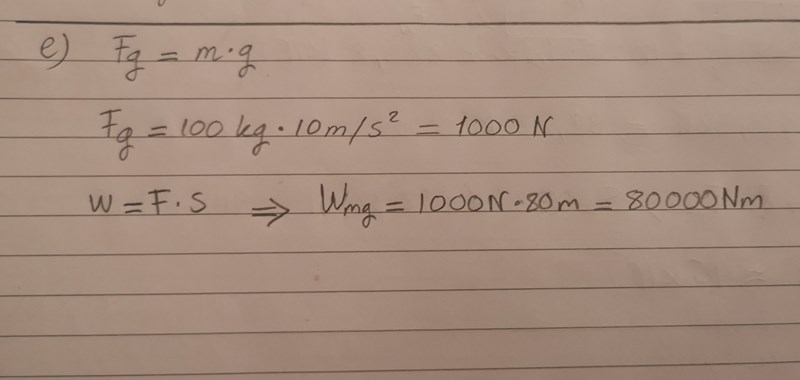 e) Fg = m·g
Fg = 100 kg · 10m/s² = 1000 N
W = F·S ⇒ Wmg = 1000N·80m = 80000Nm